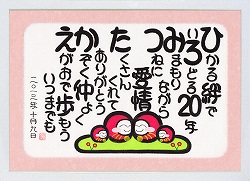 ひかる絆で
いろどる20年
みまもりながら
つねに愛情
たくさんくれて
ありがとう
かぞく仲よく
えがおで歩もう
いつまでも
二〇一三年 十月九日